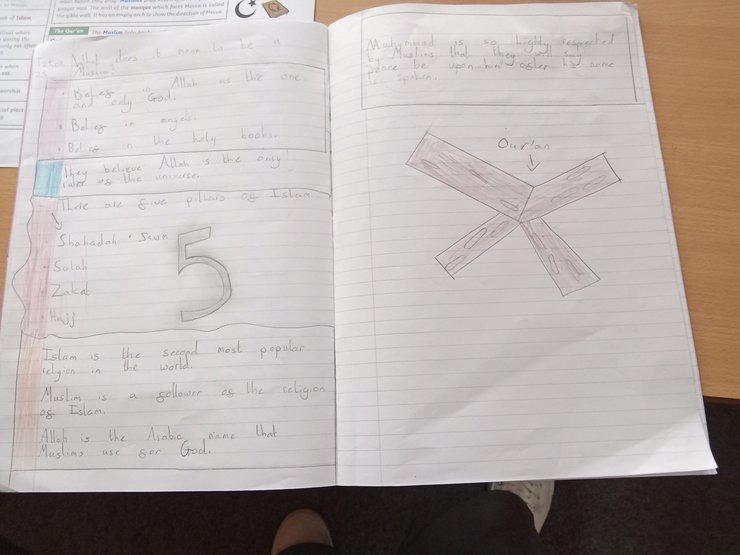 prayer mat. The wall of the mosque which faces Mecca is called
the qibla wall. It has an empty arch to show the direction of Mecca.
The Qur'an
The Muslim holy book
of Islam
What does it mean to be a
Muslim?
• Belief in Allah as the one
and only God.
• Belief in angels.
• Belief in the holy books.
They believe Allah is the only
ruler of the universe.
There are five pillars of Islam
Shahadah • Sawm
• Salah
Zakat
• Hajj
5
Islam is the second most popular
religion in the world.
Muslim is a follower of the religion
of Islam.
Allah is the Arabic name that
Muslims use for God.
Muhammad is so highly respected
by Muslims that they will say
peace be upon him after his name
is spoken.
Qur'an